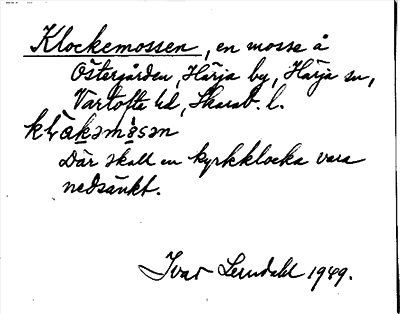 Klockemossen, en mosse å
Östergården, Härja by, Härja sn,
Vartofta hd, Skarab. l.
klåkəmåsən
Där skall en kyrkklocka vara
nedsänkt.
Ivar Lundahl 1949.